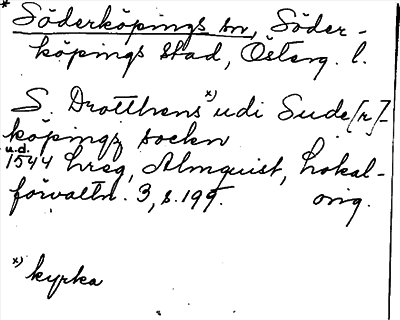 * Söderköpings sn, Söder-
köpings stad, Österg. l.
S. Drotthens x) udi Sude[r]-
köpings socken
u.d.
1544 hreg, Almquist, Lokal-
förvaltn. 3, s. 199. orig.
x) kyrka